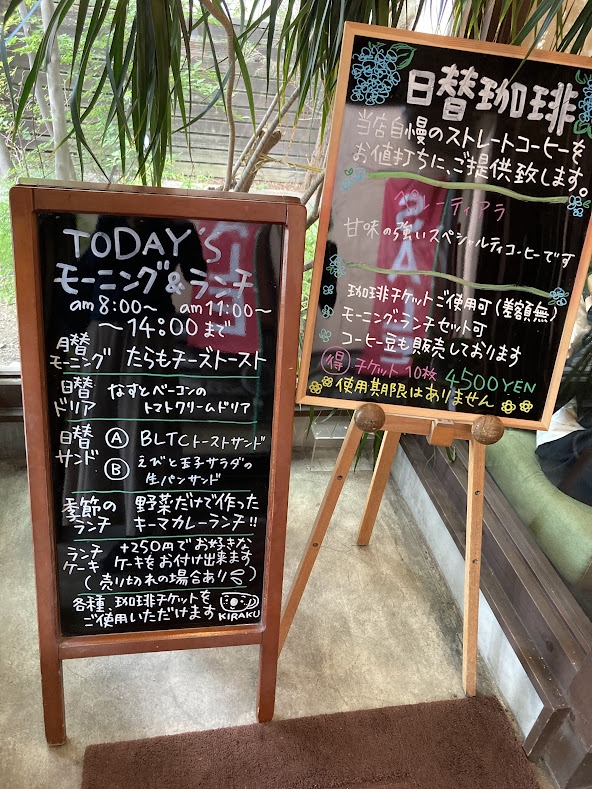 TODAY'S
モーニング&ランチ
am8:00〜 am11:00〜
〜14:00まで
月替モーニング たらもチーズトースト
日替ドリア なすとベーコンの
トマトクリームドリア
日替サンド Ⓐ BLTCトーストサンド
Ⓑ えびと玉子サラダの
生パンサンド
季節の 野菜だけで作った
ランチ キーマカレーランチ!!
ランチ +250円でお好きな
ケーキ ケーキをお付け出来ます
(売り切れの場合あり)
各種、珈琲チケットを
ご使用いただけます KIRAKU
日替珈琲
当店自慢のストレートコーヒーを
お値打ちに、ご提供致します。
ペレーティアラ
甘味の強いスペシャルティコーヒーです
珈琲チケットご使用可(差額無)
モーニング・ランチセット可
コーヒー豆も販売しております
得 チケット10枚 4500YEN
使用期限はありません